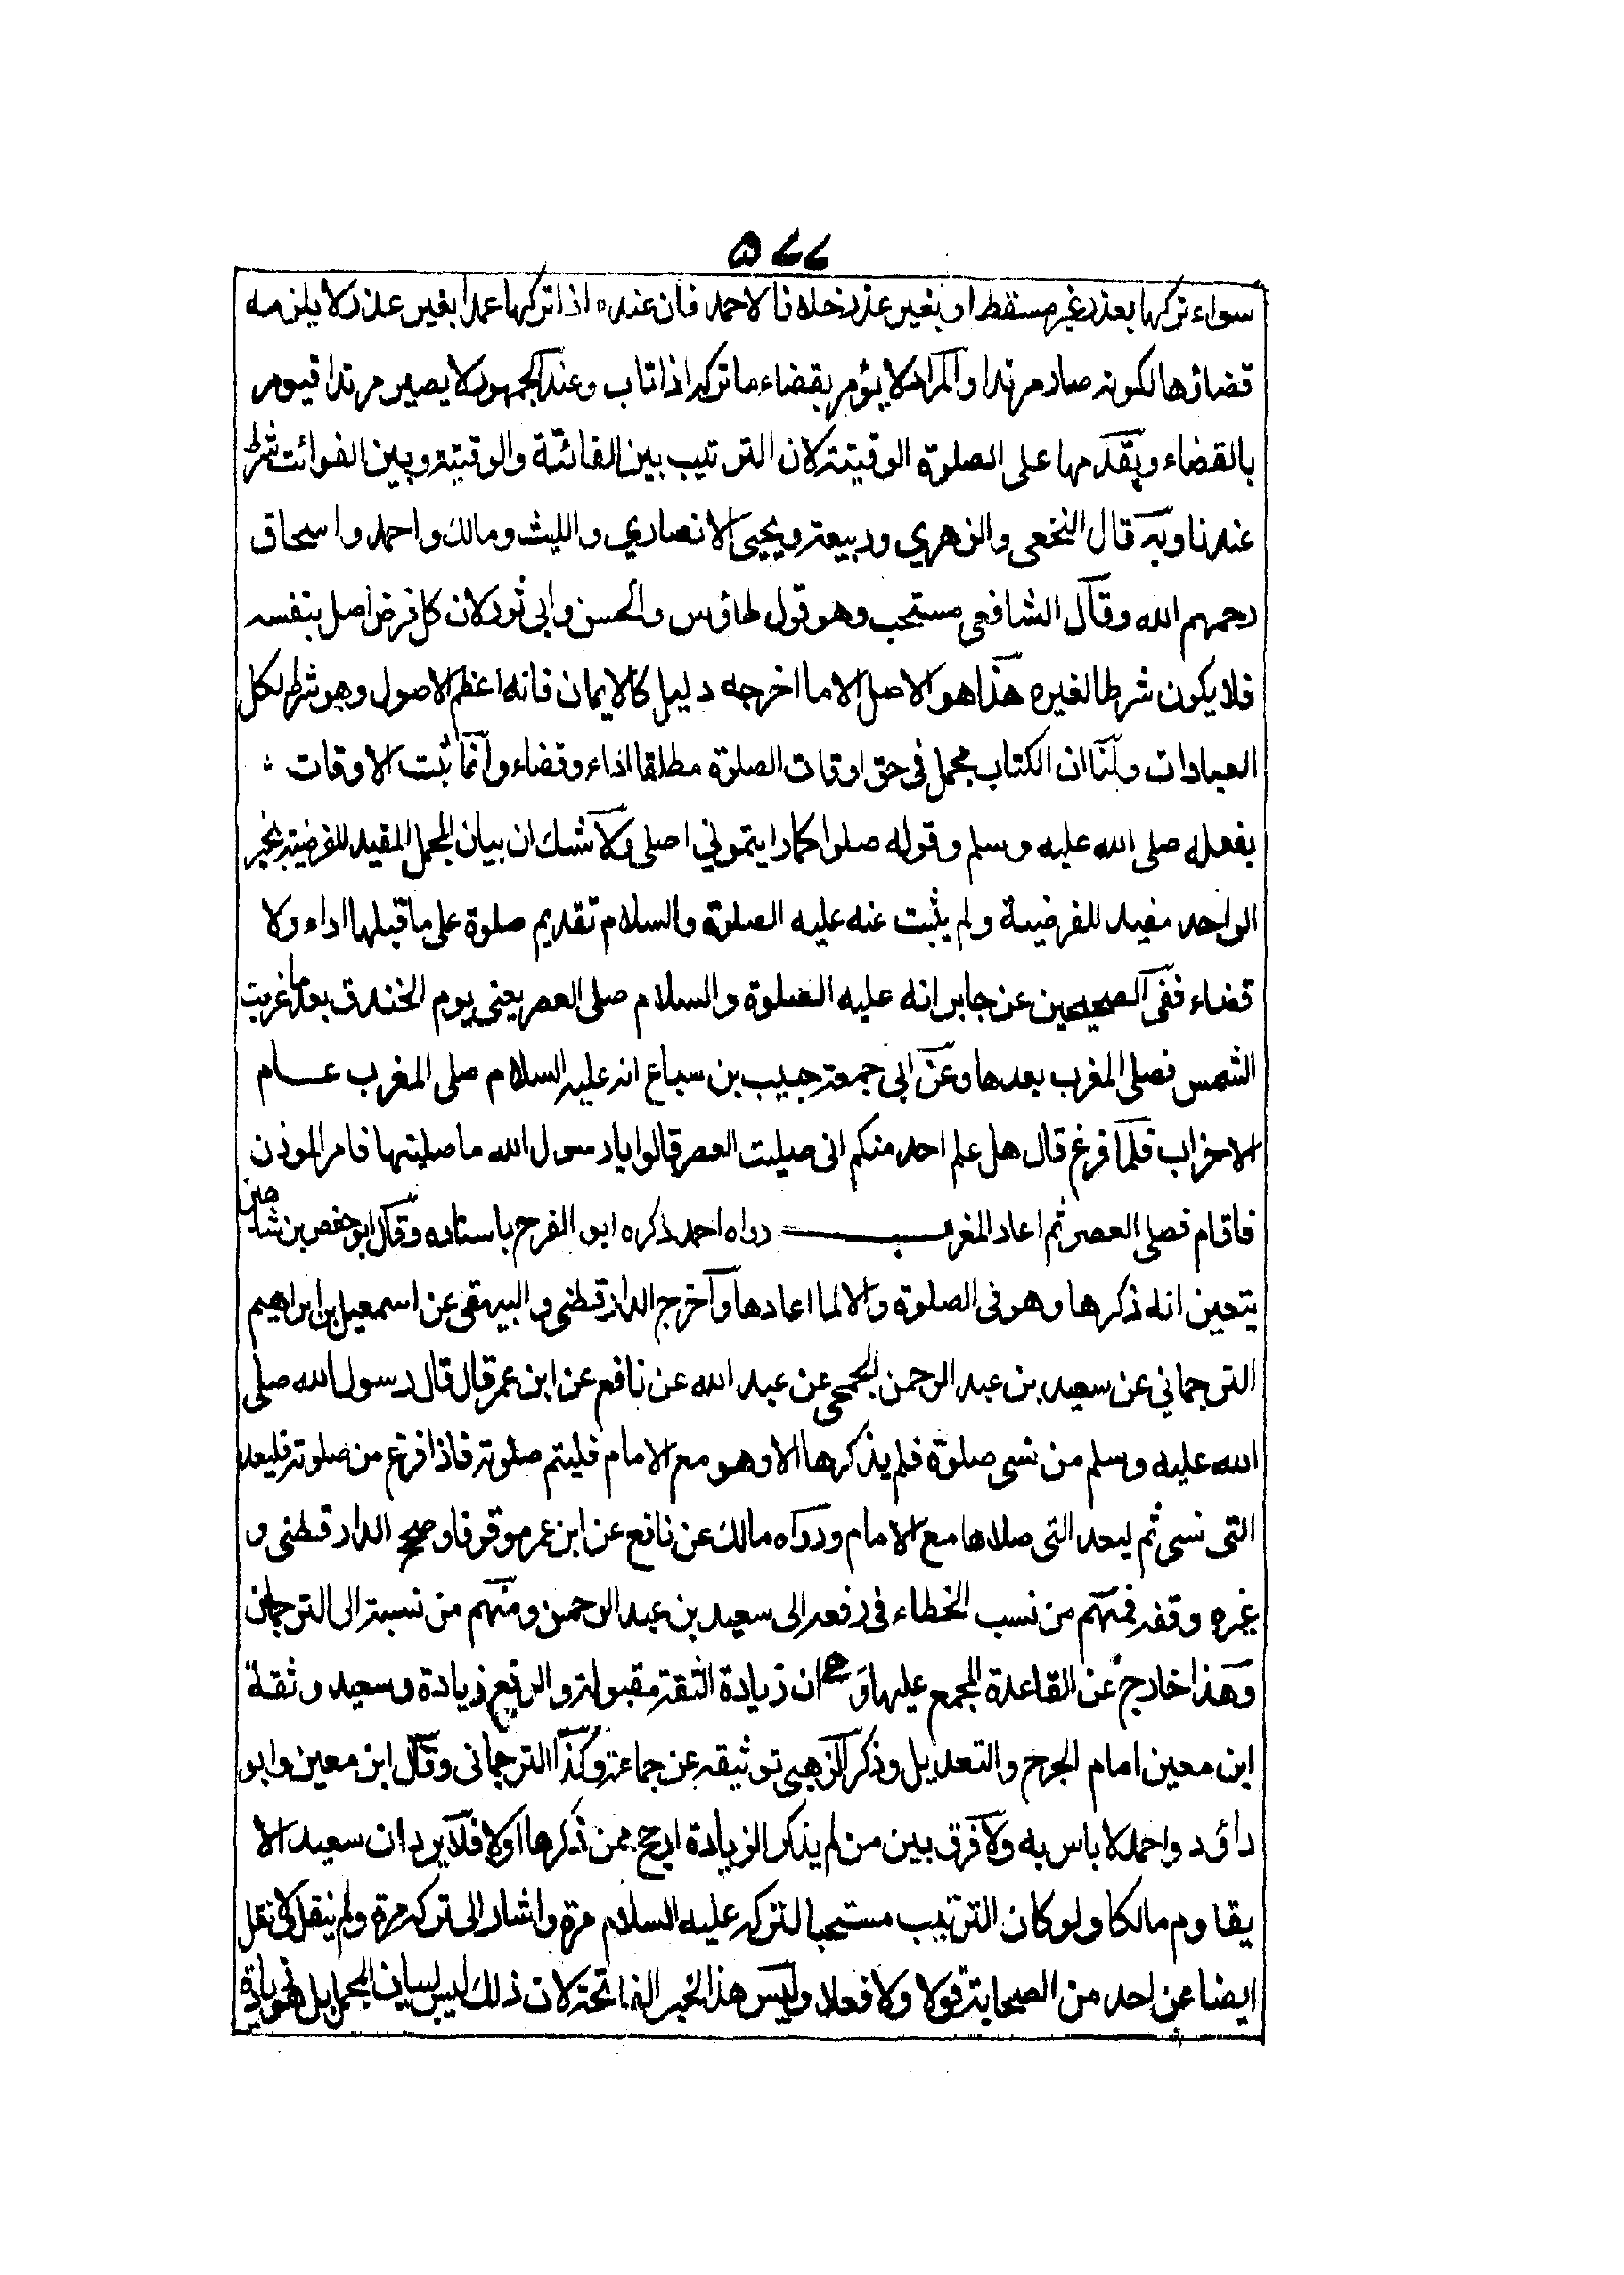 ۵۲۲
سواء تركها بعذر غير مسقط او بغير عذر خلافا لاحمد فان عنده اذا تركها عمدا بغير عذر لا يلزمه
قضاؤها لكونه صار مرتدا والمرتد لا يؤمر بقضاء ما تركه اذا تاب وعند الجمهور لا يصير مرتدا فيؤمر
بالقضاء ويقدمها على الصلوة الوقيتة لان الترتيب بين الفائتة والوقيتة وبين الفوائت شرط
عندنا وبه قال النخعي والزهري وربيعة ويحيى الانصاري والليث ومالك واحمد واسحاق
رحمهم الله وقال الشافعي مستحب وهو قول طاؤس والحسن وابي ثور لان كل فرض اصل بنفسه
فلا يكون شرطا لغيره هذا هو الاصل الا ما اخرجه دليل كالايمان فانه اعظم الاصول وهو شرط لكل
العبادات ولنا ان الكتاب مجمل في حق اوقات الصلوة مطلقا اداء وقضاء وانما ثبت الاوقات
بفعله صلى الله عليه وسلم وقوله صلوا كما رايتموني اصلي ولا شك ان بيان المجمل المقيد للفرضية بخبر
الواحد مفيد للفرضية ولم يثبت عنه عليه الصلوة والسلام تقديم صلوة على ما قبلها اداء ولا
قضاء ففي الصحيحين عن جابر انه عليه الصلوة والسلام صلى العصر يعني يوم الخندق بعد ما غربت
الشمس فصلى المغرب بعدها وعن ابي جمعة حبيب بن سباع انه عليه السلام صلى المغرب عام
الاحزاب فلما فرغ قال هل علم احد منكم اني صليت العصر قالوا يا رسول الله ما صليتها فامر الموذن
فاقام فصلى العصر ثم اعاد المغرب رواه احمد ذكره ابو الفرح باسناده وقال ابو حفص بن شاهين
يتعين انه ذكرها وهو في الصلوة والا لما اعادها واخرج الدارقطني والبيهقي عن اسمعيل بن ابراهيم
الترجماني عن سعيد بن عبد الرحمن الجمحي عن عبد الله عن نافع عن ابن عمر قال قال رسول الله صلى
الله عليه وسلم من نسي صلوة فلم يذكرها الا وهو مع الامام فليتم صلوته فاذا فرغ من صلوته فليعد
التي نسي ثم ليعد التي صلاها مع الامام ورواه مالك عن نافع عن ابن عمر موقوفا وصحح الدارقطني و
غيره وقفه فمنهم من نسب الخطاء في رفعه الى سعيد بن عبد الرحمن ومنهم من نسبة الى الترجماني
وهذا خارج عن القاعدة المجمع عليها وهي ان زيادة الثقة مقبولة والرفع زيادة وسعيد وثقة
ابن معين امام الجرح والتعديل وذكر الزهبي توثيقه عن جماعة وكذا الترجماني وقال ابن معين وابو
داؤد واحمد لا باس به ولا فرق بين من لم يذكر الزيادة ارجح ممن ذكرها اولا فلا يرد ان سعيد الا
يقاوم مالكا ولو كان الترتيب مستحبا لتركه عليه السلام مرة واشار الى تركه مرة ولم ينقل كما نقل
ايضا عن احد من الصحابة قولا ولا فعلا وليس هذا الخبر الفاتحة لان ذلك ليس لبيان المجمل بل هو زيادة